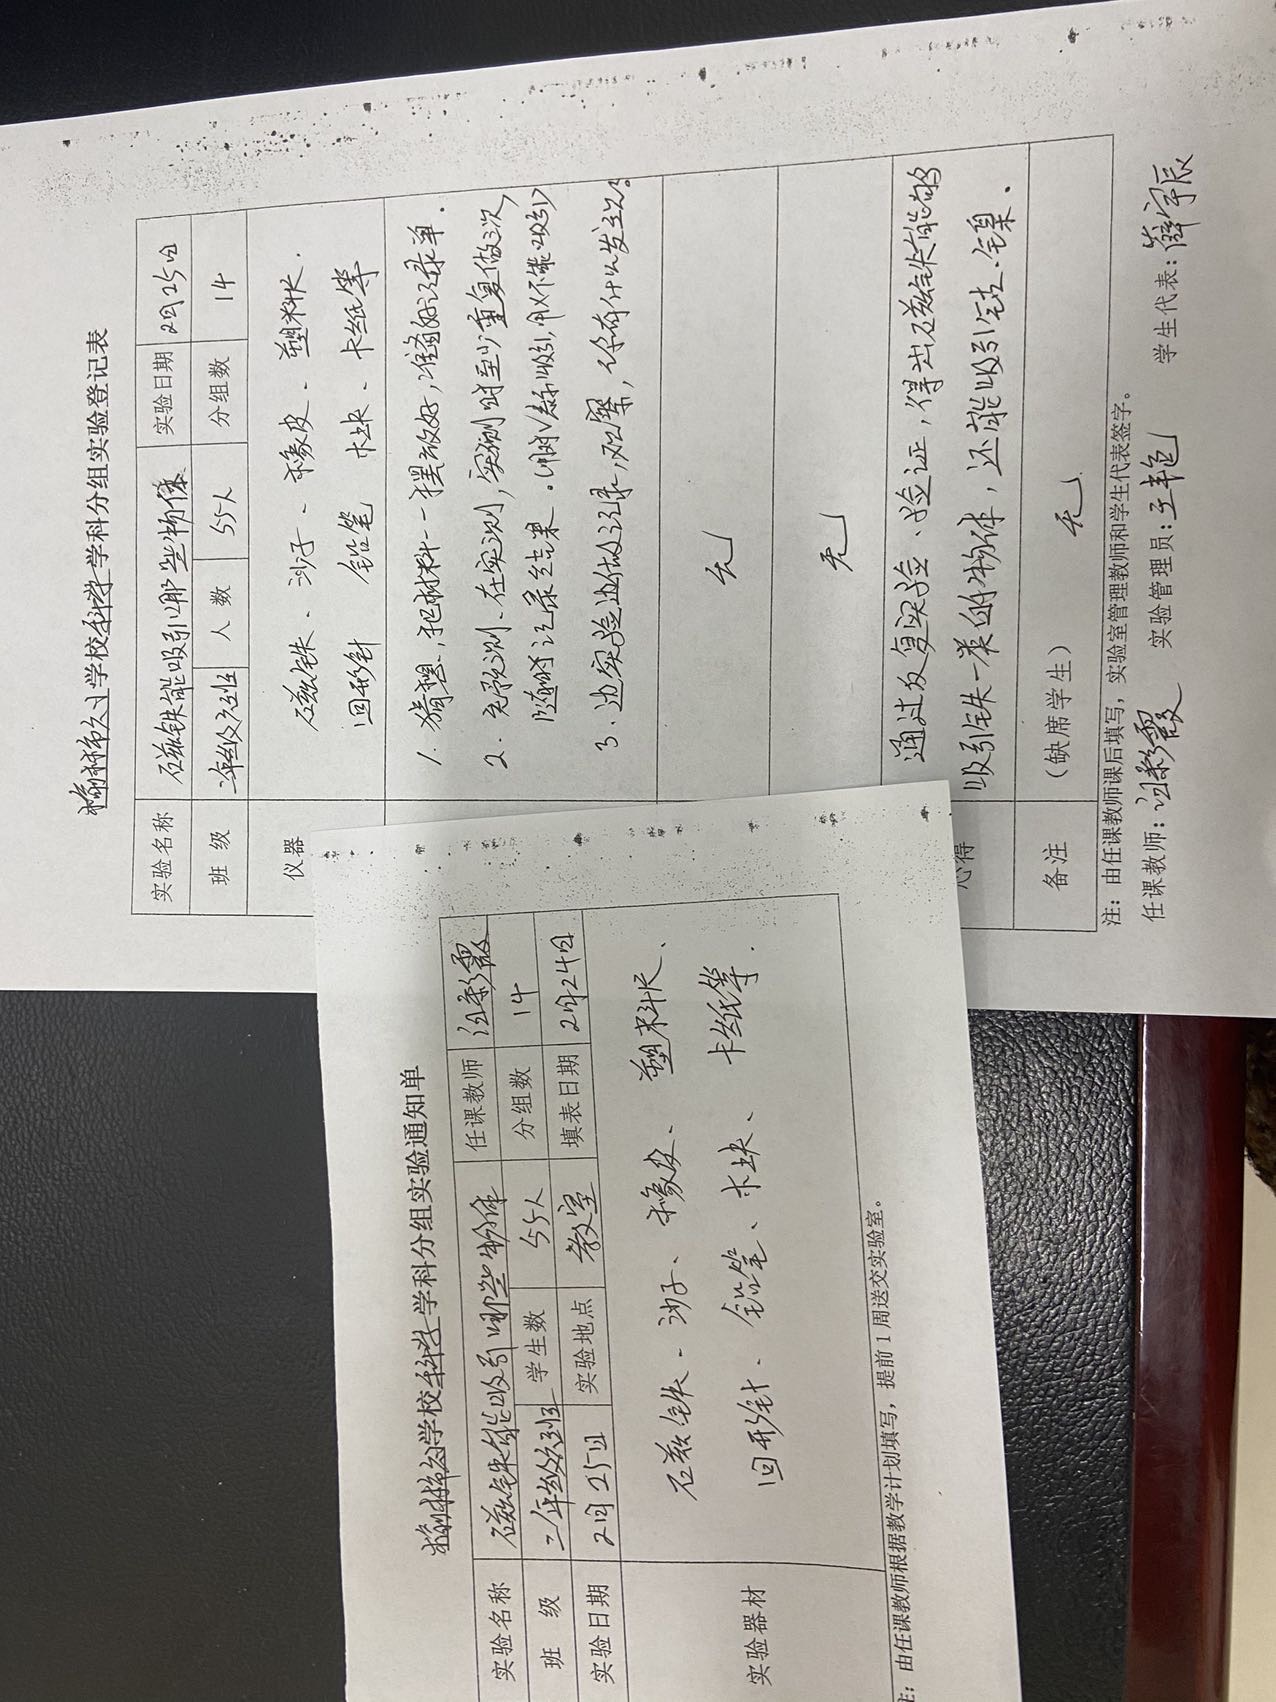 学校科学学科分组实验登记表
实验名称 磁铁能吸引哪些物体 实验日期 2月25日
班 级 二年级六班 人 数 55人 分组数 14
仪器
磁铁、沙子、橡皮、塑料尺、
回形针 铅笔 木块、卡纸等
1、猜想,把材料一一摆放好,准备好记录单.
2、先预测、在实测,实测时至少重复做三次,
随时记录结果.(用√表示吸引,用×不能吸引)
3、边实验边做记录,观察,你有什么发现。
无
无
心得
通过反复实验、验证,得出磁铁能够
吸引铁一类的物体,还能吸引钴、镍、
备注 (缺席学生) 无
注:由任课教师课后填写,实验室管理教师和学生代表签字。
任课教师: 实验管理员: 学生代表:薛宇辰
学校科学学科分组实验通知单
实验名称 磁铁能吸引哪些物体 任课教师
班 级 二年级六班 学生数 55人 分组数 14
实验日期 2月25日 实验地点 教室 填表日期 2月24日
实验器材
磁铁、沙子、橡皮、塑料尺、
回形针、铅笔、木块、卡纸等.
注:由任课教师根据教学计划填写,提前1周送交实验室。